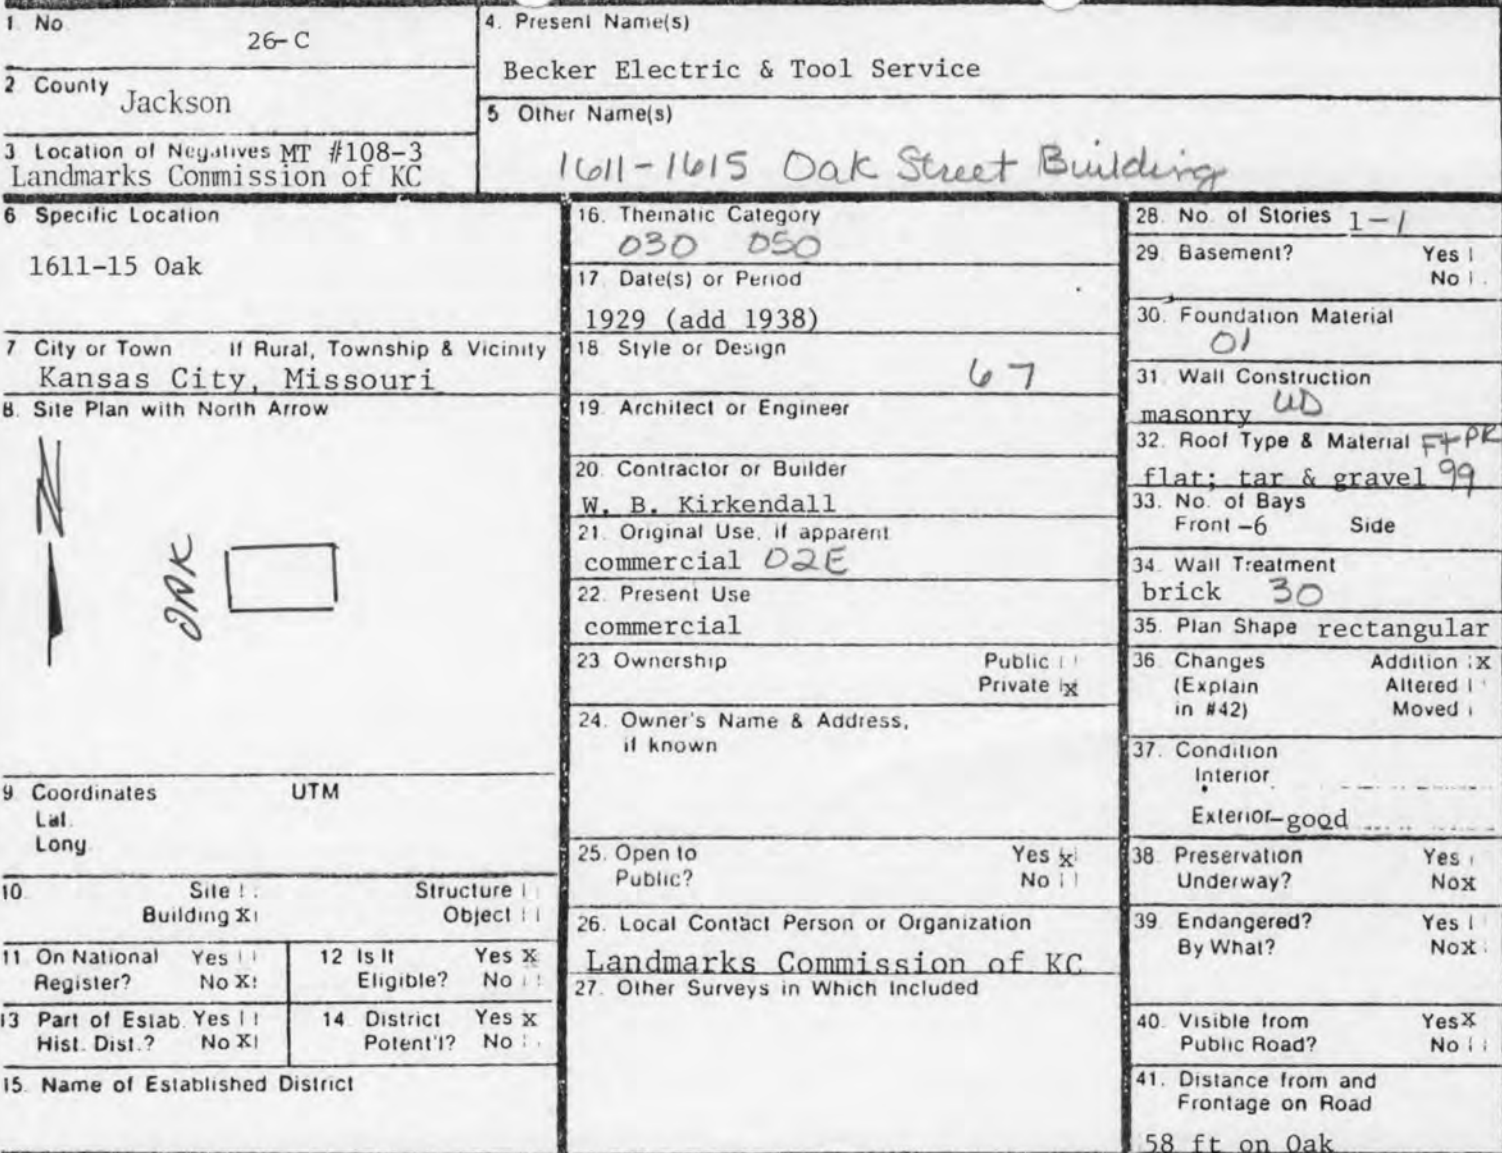 1. No.
26-C
2 County
Jackson
3 Location of Negatives MT #108-3
Landmarks Commission of KC
4. Present Name(s)
Becker Electric & Tool Service
5 Other Name(s)
1611-1615 Oak Street Building
6 Specific Location
1611-15 Oak
7 City or Town If Rural, Township & Vicinity
Kansas City, Missouri
8. Site Plan with North Arrow
N
OAK
9 Coordinates UTM
Lat.
Long
10. Site Structure
Building X Object
11 On National Yes
Register? No X
12 Is It Yes X
Eligible? No
13 Part of Estab. Yes
Hist. Dist.? No X
14 District Yes X
Potent'l? No
15. Name of Established District
16. Thematic Category
030 050
17. Date(s) or Period
1929 (add 1938)
18. Style or Design
67
19. Architect or Engineer
20. Contractor or Builder
W. B. Kirkendall
21. Original Use, if apparent
commercial 02E
22. Present Use
commercial
23 Ownership Public
Private X
24. Owner's Name & Address,
if known
25. Open to Yes X
Public? No
26. Local Contact Person or Organization
Landmarks Commission of KC
27. Other Surveys in Which Included
28. No. of Stories 1-1
29. Basement? Yes
No
30. Foundation Material
01
31. Wall Construction
masonry UD
32. Roof Type & Material FT PR
flat; tar & gravel 99
33. No. of Bays
Front -6 Side
34. Wall Treatment
brick 30
35. Plan Shape rectangular
36. Changes Addition X
(Explain Altered
in #42) Moved
37. Condition
Interior
Exterior-good
38. Preservation Yes
Underway? No X
39. Endangered? Yes
By What? No X
40. Visible from Yes X
Public Road? No
41. Distance from and
Frontage on Road
58 ft on Oak